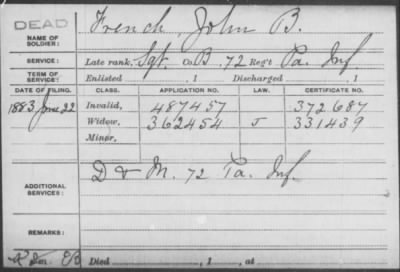 DEAD
NAME OF SOLDIER: French, John B.
SERVICE: Late rank, Sgt. Co. B, 72 Reg't Pa. Inf
TERM OF SERVICE: Enlisted , 1 Discharged , 1
DATE OF FILING. CLASS. APPLICATION NO. LAW. CERTIFICATE NO.
1883 June 22 Invalid, 487457 372687
Widow, 362454 J 331439
Minor,
ADDITIONAL SERVICES: D & M. 72 Pa. Inf.
REMARKS:
Died , 1 , at